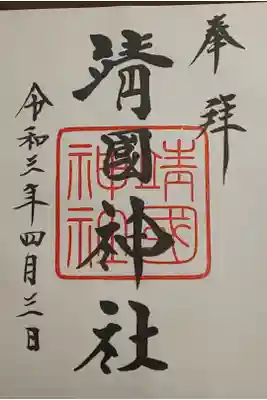 奉拝
靖國神社
靖國神社
令和三年四月三日